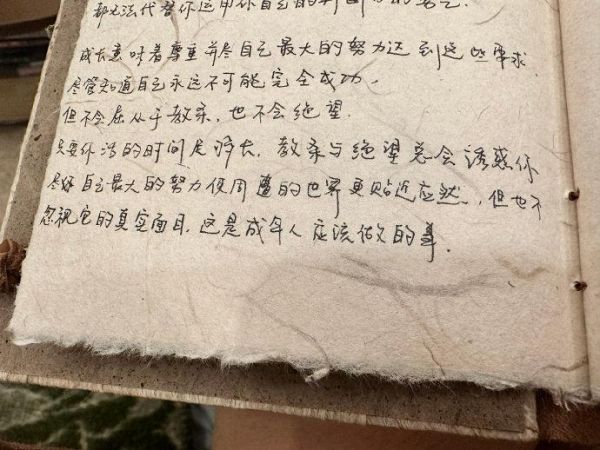 都无法代替你运用你自己的判断力的勇气.
成长意味着尊重并尽自己最大的努力达到这些要求
尽管知道自己永远不可能完全成功.
但不会屈从于教条, 也不会绝望.
只要你活的时间足够长, 教条与绝望总会诱惑你
尽好自己最大的努力使周遭的世界更贴近应然, 但也不
忽视它的真实面目, 这是成年人应该做的事.